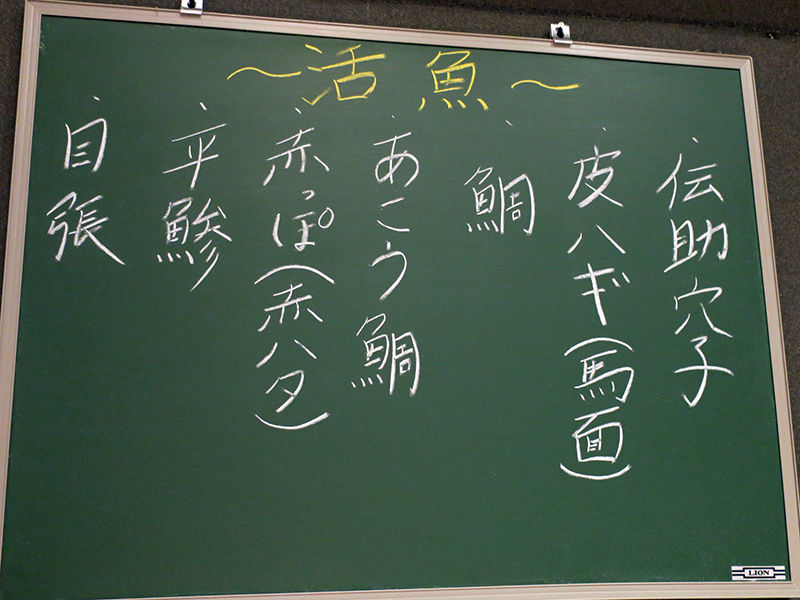 ～活魚～
・伝助穴子
・皮ハギ(馬面)
・鯛
・あこう鯛
・赤っぽ(赤ハタ)
・平鯵
・目張
LION